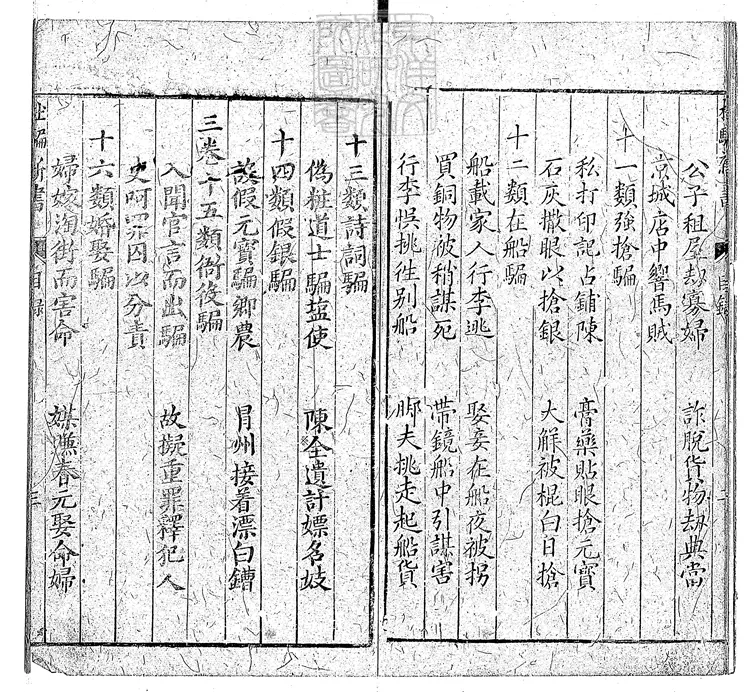 公子租屋劫寡婦　詐脫貨物劫典當
京城店中響馬賊
十一類強搶騙
私打印記占鋪陳　膏藥貼眼搶元寶
石灰撒眼以搶銀　大解被棍白日搶
十二類在船騙
船載家人行李逃　娶妾在船夜被拐
買銅物被稍謀死　帶鏡船中引謀害
行李悞挑徃别船　脚夫挑走起船貨
十三類詩詞騙
偽粧道士騙塩使　陳全遺計嫖名妓
十四類假銀騙
設假元寶騙鄉農　冐州接着漂白鏪
三卷十五類衙役騙
入聞官言而出騙　故擬重罪釋犯人
吏呵罪囚以分責
十六類婚娶騙
婦嫁淘街而害命　媒賺春元娶命婦
杜騙新書　目録　三